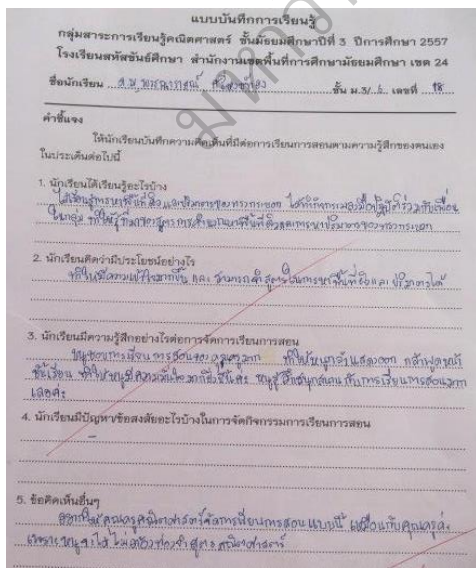 แบบบันทึกการเรียนรู้
กลุ่มสาระการเรียนรู้คณิตศาสตร์ ชั้นมัธยมศึกษาปีที่ 3 ปีการศึกษา 2557
โรงเรียนสหัสขันธ์ศึกษา สำนักงานเขตพื้นที่การศึกษามัธยมศึกษา เขต 24
ชื่อนักเรียน ด.ญ. ชั้น ม.3/ เลขที่ 18
คำชี้แจง
ให้นักเรียนบันทึกความคิดเห็นที่มีต่อการเรียนการสอนตามความรู้สึกของตนเอง
ในประเด็นต่อไปนี้
1. นักเรียนได้เรียนรู้อะไรบ้าง
ได้เรียนรู้การหาพื้นที่ผิวและปริมาตรของทรงกระบอก ได้ทำกิจกรรมลงมือปฏิบัติร่วมกับเพื่อน
ในกลุ่ม ทำให้รู้ที่มาของสูตรการหาพื้นที่ผิวและการหาปริมาตรของทรงกระบอก
2. นักเรียนคิดว่ามีประโยชน์อย่างไร
ทำให้มีความเข้าใจมากขึ้น และ สามารถนำสูตรในการหาพื้นที่ผิวและ ปริมาตรได้
3. นักเรียนมีความรู้สึกอย่างไรต่อการจัดการเรียนการสอน
หนูชอบการเรียนการสอนของคุณครูมาก ทำให้หนูกล้าแสดงออก กล้าพูดหน้า
ชั้นเรียน ทำให้หนูมีความมั่นใจมากยิ่งขึ้นค่ะ หนูรู้สึกสนุกสนานกับการเรียนการสอนมาก
เลยค่ะ
4. นักเรียนมีปัญหา/ข้อสงสัยอะไรบ้างในการจัดกิจกรรมการเรียนการสอน
-
5. ข้อคิดเห็นอื่นๆ
อยากให้คุณครูคณิตศาสตร์จัดการเรียนการสอนแบบนี้ เหมือนกับคุณครูค่ะ
เพราะหนูจะได้ไม่ต้องท่องจำสูตรคณิตศาสตร์